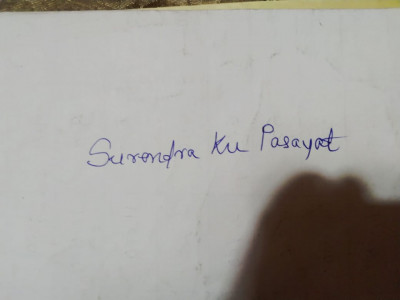 Surendra Ku Pasayat